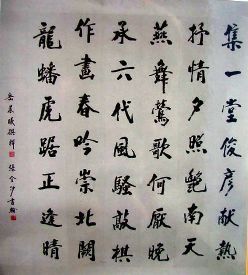 集一堂俊彦献热
抒情夕照艶南天
燕舞莺歌何厭晚
承六代風騷敲棋
作畫春吟崇北闕
龍蟠虎踞正逢晴
張金沙書